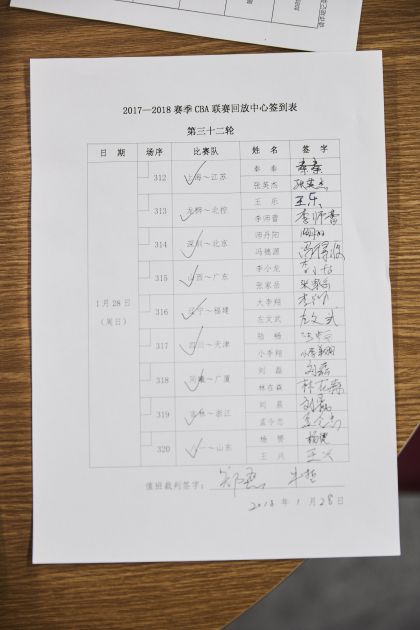 2017—2018 赛季 CBA 联赛回放中心签到表
第三十二轮
日 期 场序 比赛队 姓 名 签 字
1月28日
(周日)
312 上海～江苏 秦 秦 秦秦
张英杰 张英杰
313 龙狮～北控 王 乐 王乐
李师普 李师普
314 深圳～北京 帅丹阳
冯德源
315 山西～广东 李小龙
张家岳 张家岳
316 辽宁～福建 大李翔
左文武 左文武
317 四川～天津 杨
小李翔 小李翔
318 同曦～广厦 刘 磊 刘磊
林在森 林在森
319 吉林～浙江 刘 磊 刘磊
孟令志 孟令志
320 八一～山东 杨 赞 杨赞
王 兴 王兴
值班裁判签字：
2018 年 1 月 28 日